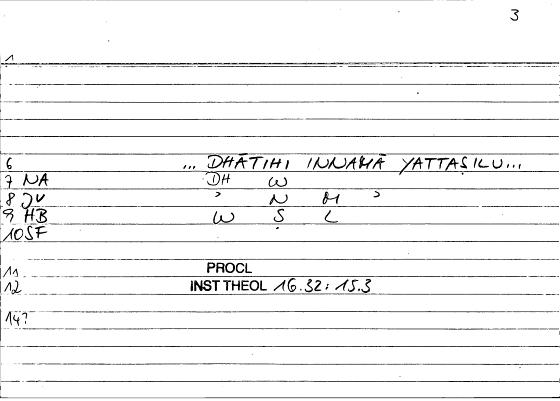 3
1
6 ... DHĀTIHI INNAMĀ YATTAṢILU...
7 NA DH W
8 JV ʾ N M ʾ
9 HB W Ṣ L
10 SF
11 PROCL
12 INST THEOL 16.32; 15.3
14?